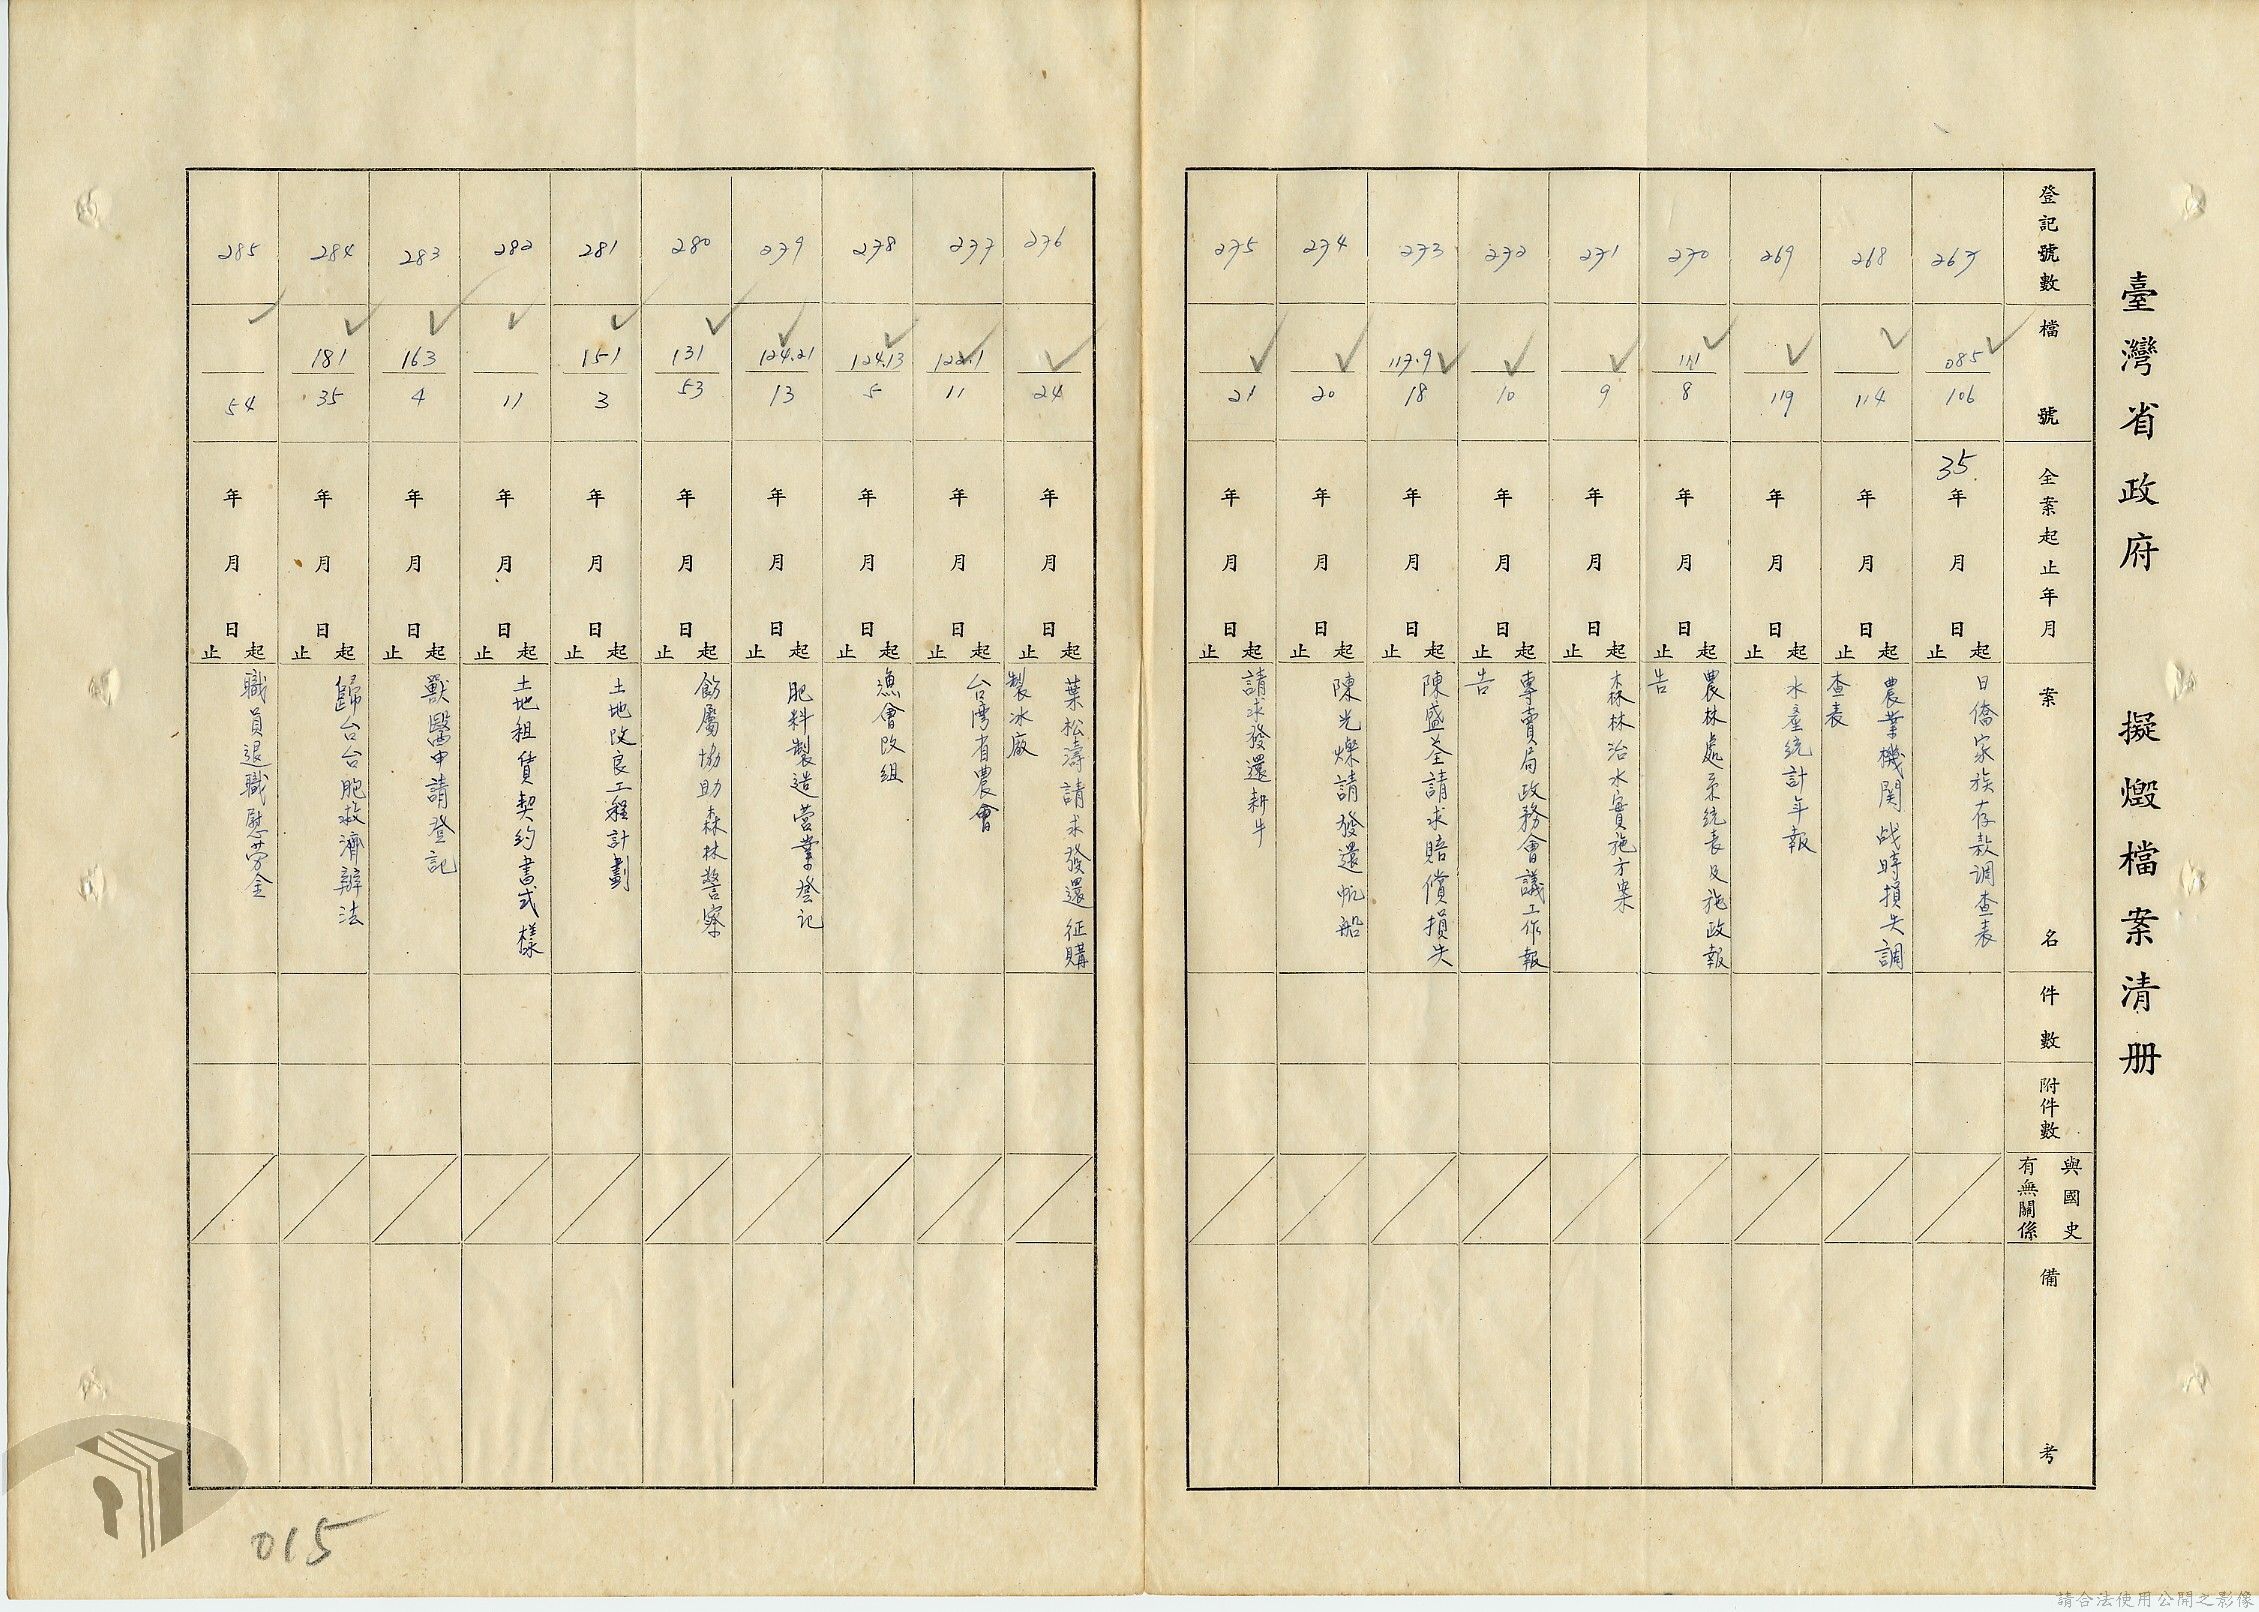 臺灣省政府 擬燬檔案清册
登記號數
檔號
全案起止年月
案名
件數
附件數
與國史
有無關係
備考
267
085
106
35年月日起止
日僑家族存款調查表
268
114
年月日起止
農業機関战時損失調
查表
269
119
年月日起止
水產統計年報
270
111
8
年月日起止
農林處系統表及施政報
告
271
9
年月日起止
森林治水實施方案
272
10
年月日起止
專賣局政務會議工作報
告
273
117.9
18
年月日起止
陳盛荃請求賠償損失
274
20
年月日起止
陳光燦請發還帆船
275
21
年月日起止
請求發還耕牛
276
24
年月日起止
葉松濤請求發還征購
製冰廠
277
122.1
11
年月日起止
台湾省農會
278
124.13
5
年月日起止
漁會改組
279
124.21
13
年月日起止
肥料製造营業登记
280
131
53
年月日起止
飭屬協助森林警察
281
151
3
年月日起止
土地改良工程計劃
282
11
年月日起止
土地租賃契約書式樣
283
163
4
年月日起止
獸醫申請登記
284
181
35
年月日起止
歸台台胞救濟辦法
285
54
年月日起止
職員退職慰劳金
015
請合法使用公開之影像